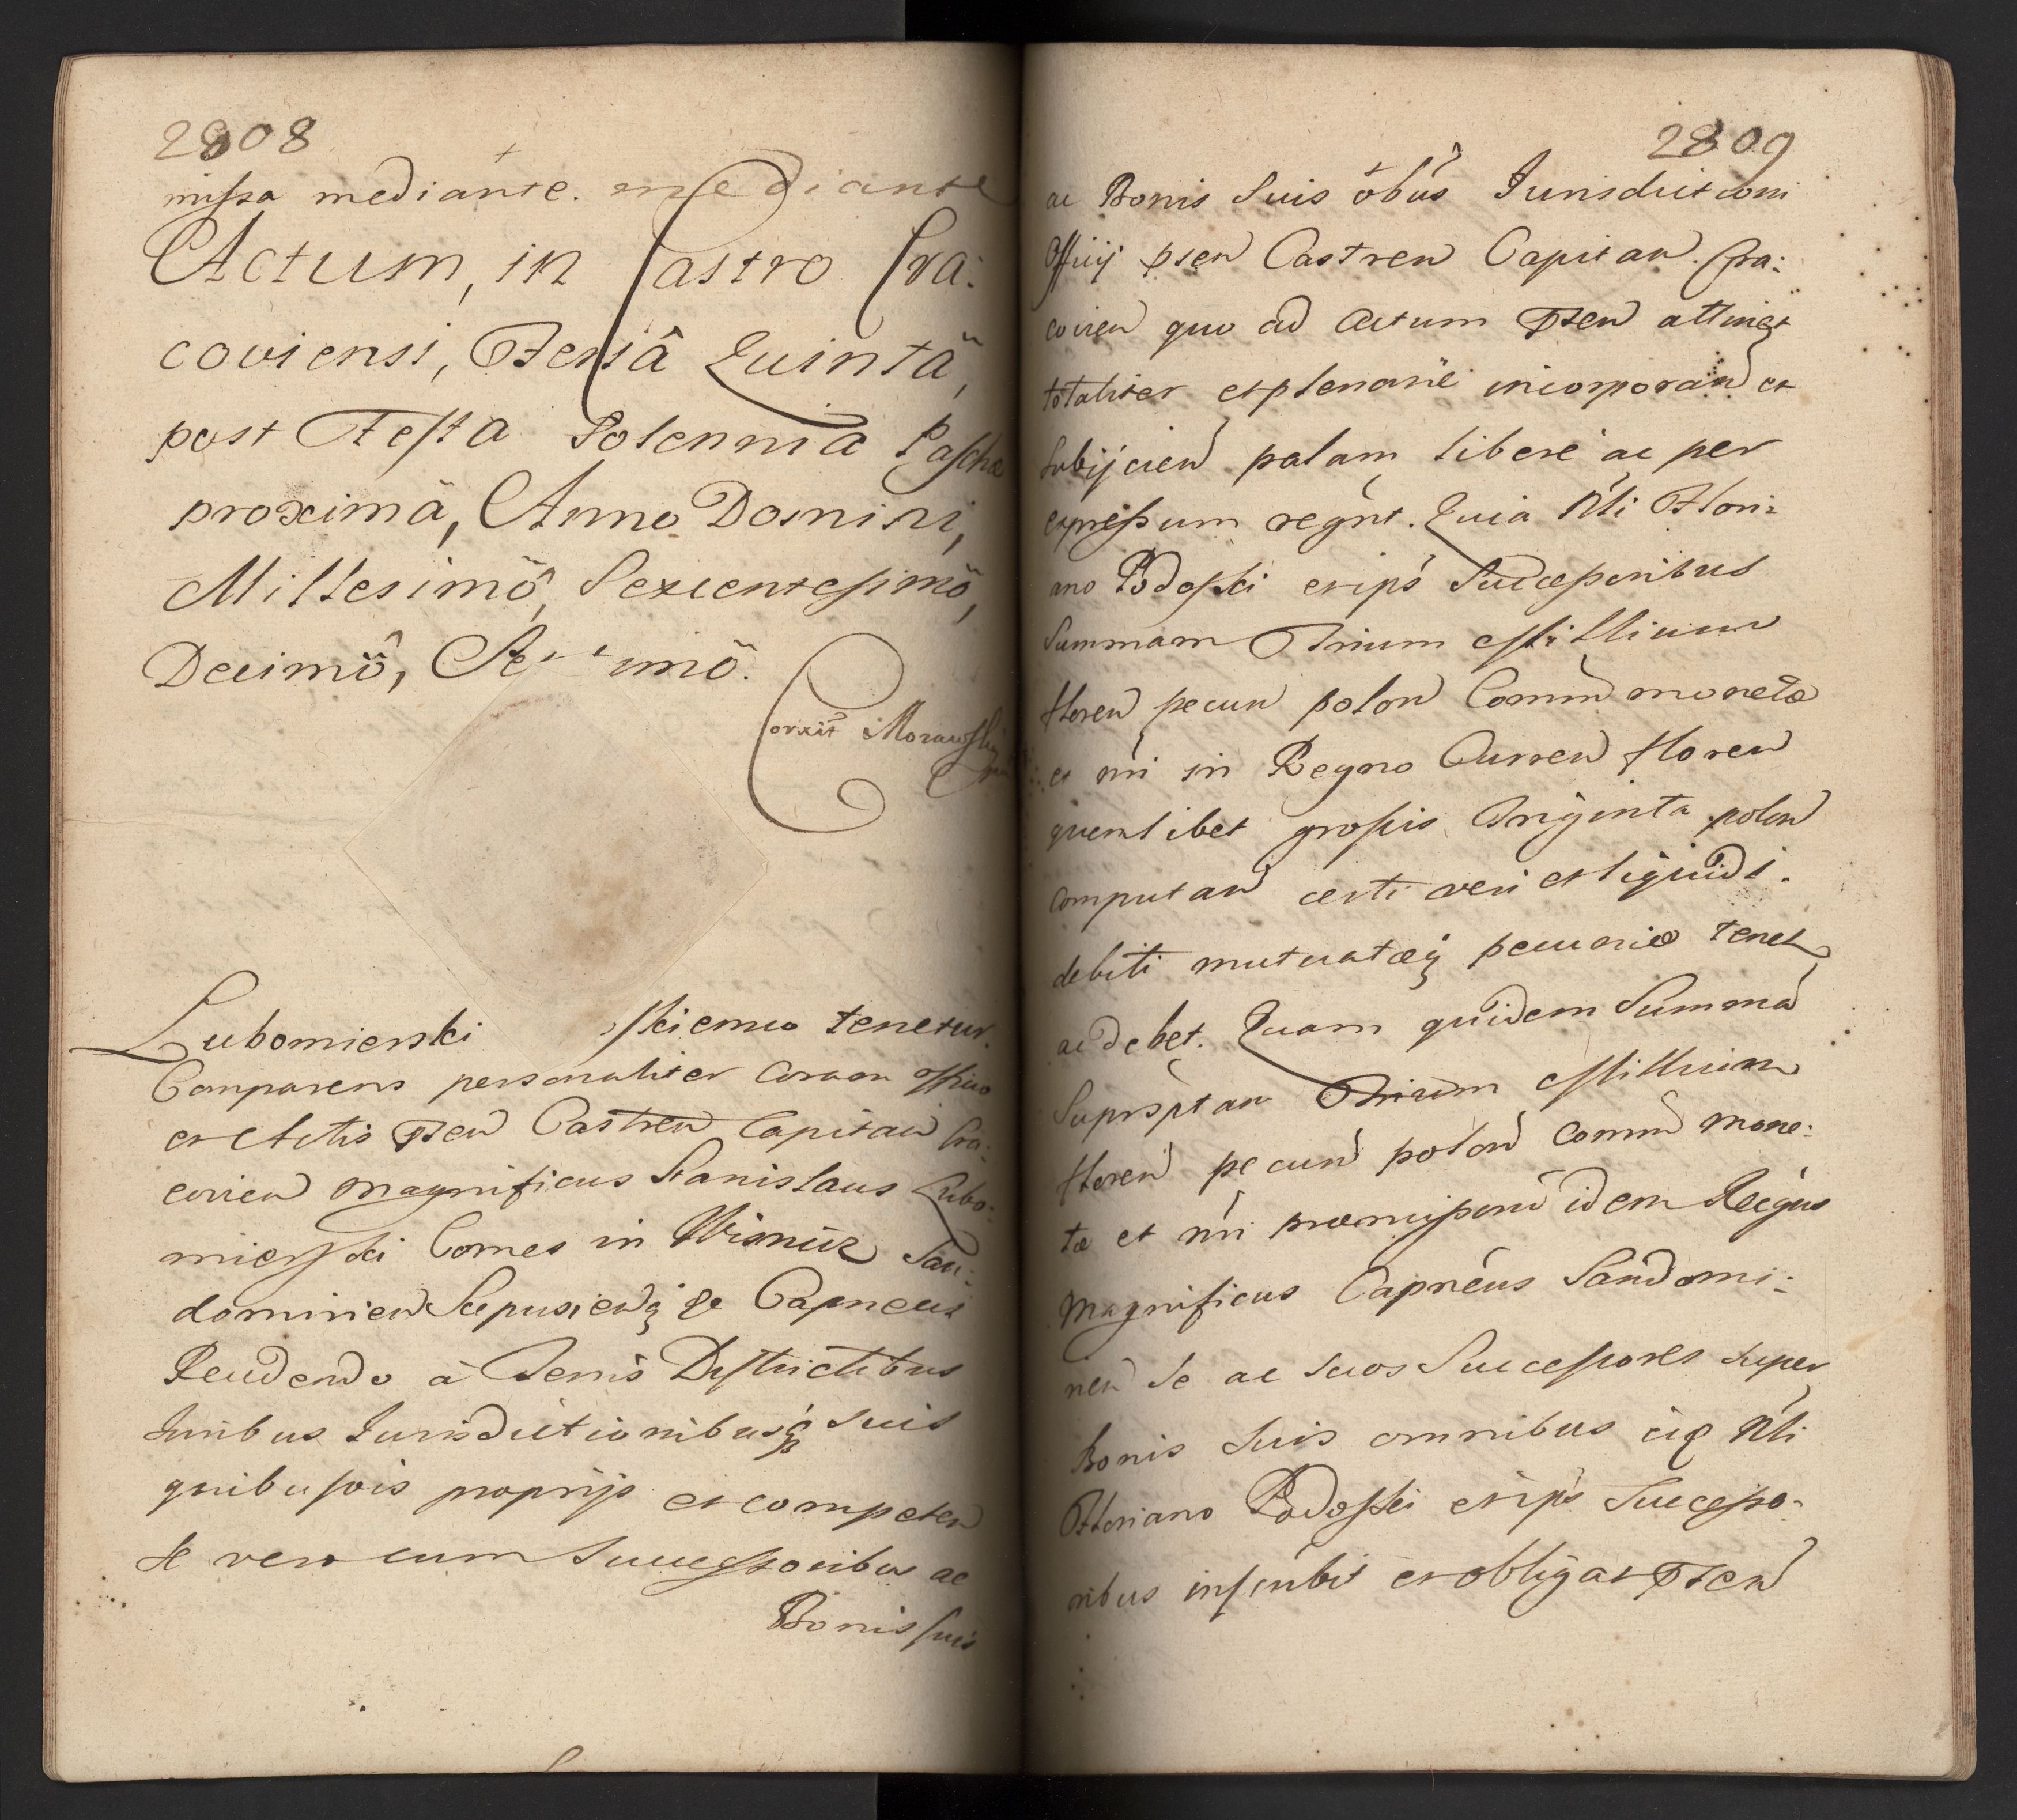 2808
missa mediante. mediante
Actum, in Castro Cra:
coviensi, Feriâ Quintâ,
post Festa Solennia Paschæ
proximâ, Anno Domini,
Millesimô, Sexcentesimô,
Decimô, Se imô.
Corxit Morawski
Lubomierski skiemu tenetur.
Comparens personaliter coram officio
et Actis pten Castren Capitan Cra:
covien Magnificus Stanislaus Lubo:
mierski Comes in Wisnicz San:
domirien Scepusienq &c Capneus
Recedendo à Terris Districtibus
Iuribus Iurisdictionibusq suis
quibusvis proprijs et competen
se vero cum Successoribus ac
Bonis suis
2809
ac Bonis Suis õbus Iurisdictioni
Officij pten Castren Capitan. Cra:
covien quo ad Actum pten attinet
totaliter et plenariè incorporand et
subijciend palam liberè ac per
expressum regnt. Quia Nli Flori:
ano Podoski eiusq Successoribus
Summam Trium Millium
floren pecun polon Comm monetæ
et nri in Regno Curren floren
quemlibet grossis Triginta polon
computand certi veri et liquidi.
debiti mutuatæq pecuniæ tenet
ac debet. Quam quidem Summã
Suprsptan Trium Millium
floren pecun polon comm mone:
tæ et nri præmissorũ idem Recgns
Magnificus Capneus Sandomi:
rien se ac suos Successores super
Bonis suis omnibus Nli
Floriano Podoski Successo:
ribus inscribit et obligat pten